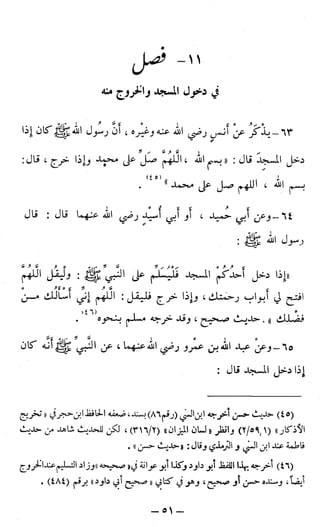 ١١- فصل
في دخول المسجد والخروج منه
٦٣-يذكر عن أنس رضي الله عنه وغيره ، أنَّ رسُول الله ﷺ كان إذا
دخل المسجدَ قال : «بسم الله ، اللَّهُمَّ صلِّ على محمد وإذا خرج ، قال:
بسم الله ، اللهم صل على محمد»(٤٥) .
٦٤-وعن أبي حُميد ، أو أبي أُسيد رضي الله عنهما قال : قال
رسول الله ﷺ :
«إذا دخل أحدُكُم المسجد فَلْيُسَلِّم على النبيِّ ﷺ : وليقُل اللَّهُمَّ
افتح لي أبواب رحمتك، وإذا خرج فليقل : اللَّهُمَّ إنِّي أسألُك مـن
فضلك» . حديث صحيح ، وقد خرجه مسلم بنحوه(٤٦) .
٦٥-وعنْ عبد الله بن عمرو رضي الله عنهما، عن النَّبيِّ ﷺ أنَّه كان
إذا دخل المسجد قال :
(٤٥) حديث حسن أخرجه ابن السني (رقم٨٦) بسند، ضعفه الحافظ ابن حجر في «تخريج
الأذكار» (٢/٥٩,١) وانظر «لسان الميزان» (٣١٦/٢) ، لكن للحديث شاهد من حديث
فاطمة عند ابن السني و الترمذي وقال : «حديث حسن» .
(٤٦) أخرجه بهذا اللفظ أبو داود وكذا أبو عوانة في «صحيحه» وزاد التسليم عند الخروج
أيضاً ، وسنده حسن أو صحيح، وهو في كتابي «صحيح أبي داود» برقم (٤٨٤) .
- ٥١ -